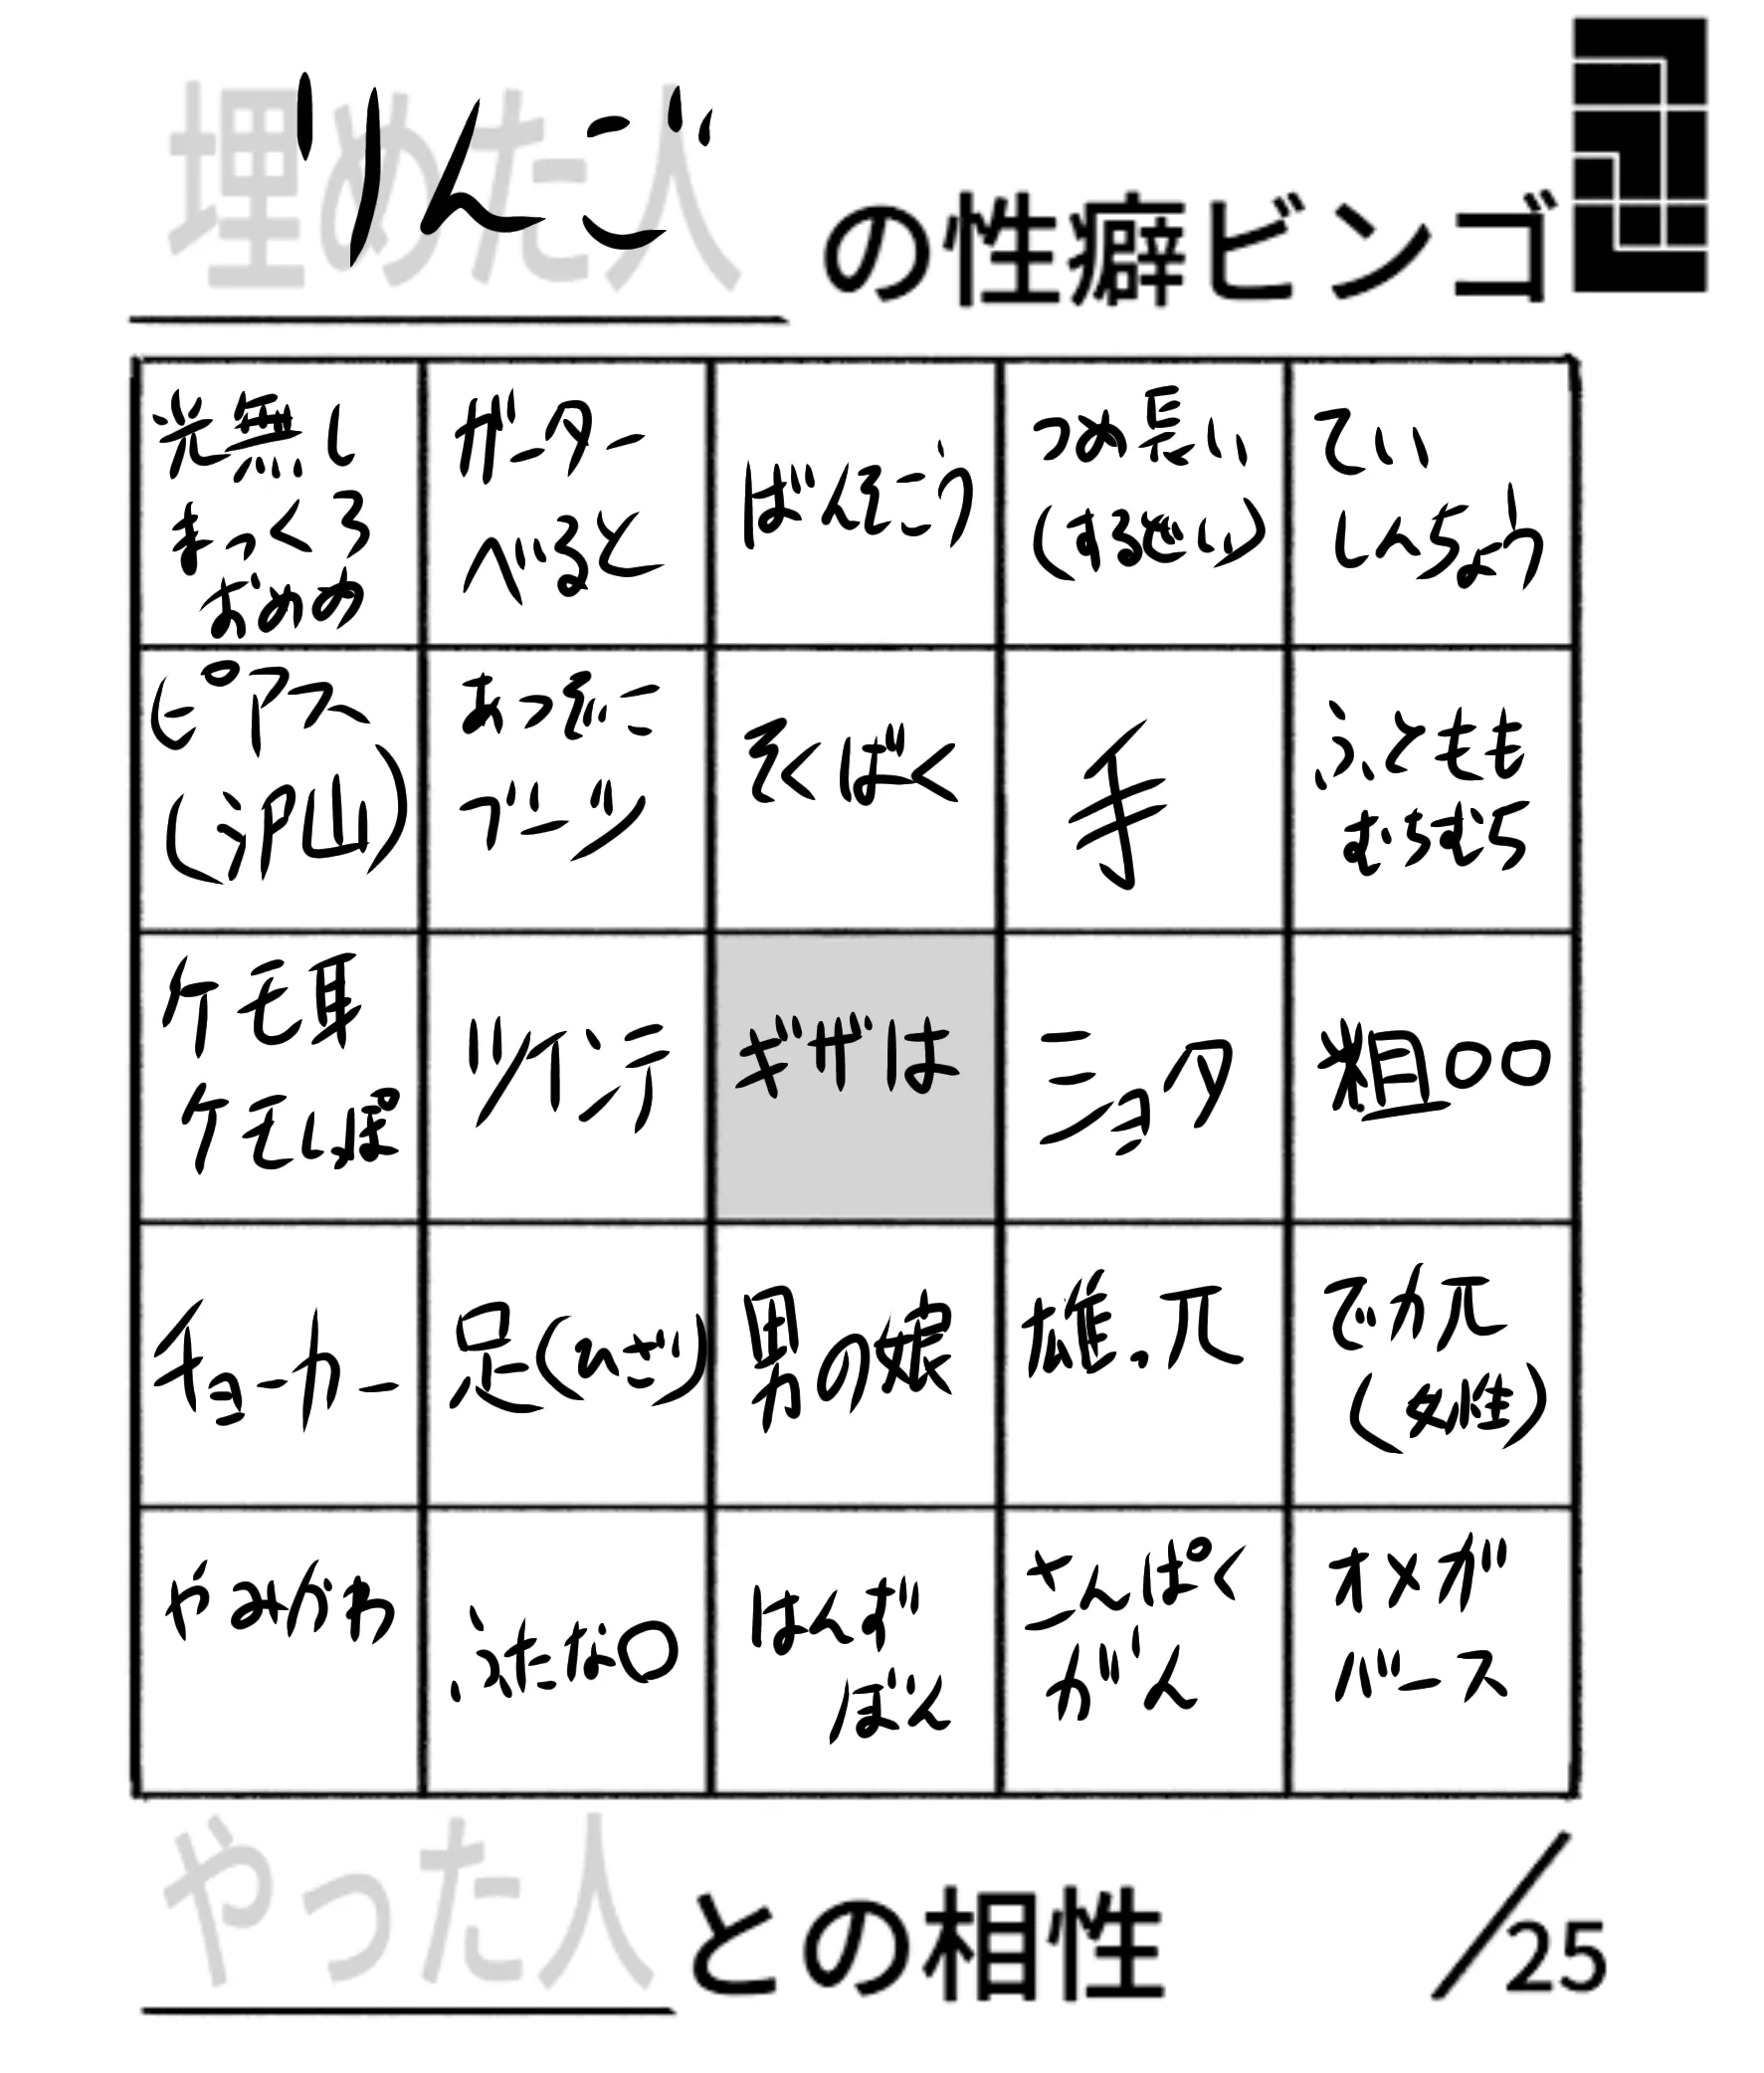 埋めた人
りんご
の性癖ビンゴ
光無し
まっくろ
おめめ
ガーター
べると
ばんそこう
つめ長い
(するどい)
てい
しんちょう
ピアス
(沢山)
あつぞこ
ブーツ
そくばく
手
ふともも
むちむち
ケモ耳
ケモしっぽ
ツインテ
ギザは
ショタ
粗〇〇
チョーカー
足(ひざ)
男の娘
雄っπ
でカπ
(女性)
やみかわ
ふたな〇
はんず
ぼん
さんぱく
がん
オメガ
バース
やった人
との相性
/25